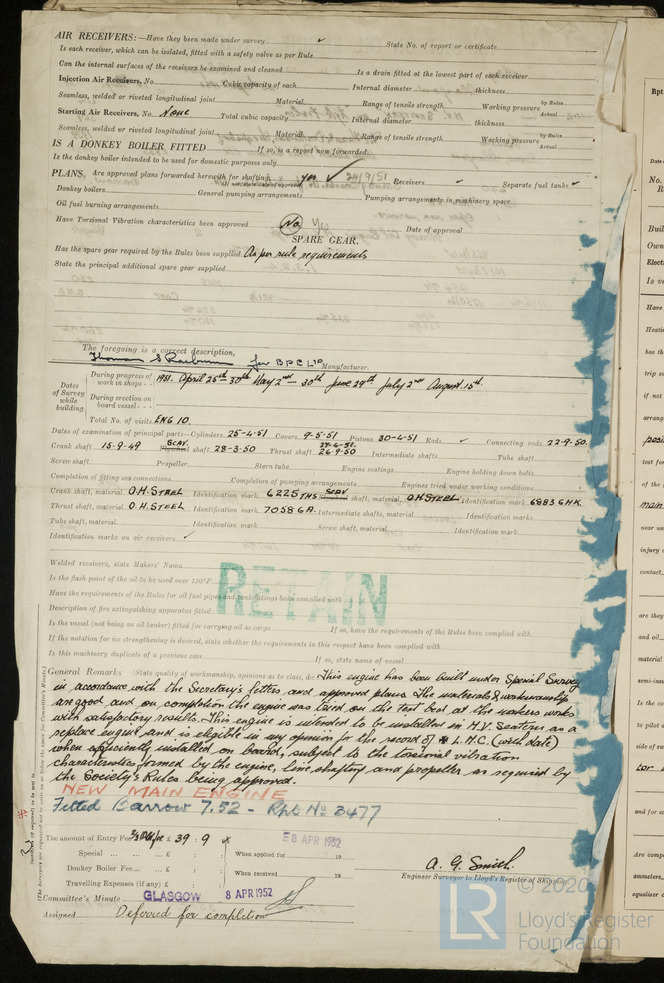 AIR RECEIVERS:—Have they been made under survey ✓ State No. of report or certificate
Is each receiver, which can be isolated, fitted with a safety valve as per Rule
Can the internal surfaces of the receivers be examined and cleaned Is a drain fitted at the lowest part of each receiver
Injection Air Receivers, No. Cubic capacity of each Internal diameter thickness
Seamless, welded or riveted longitudinal joint Material Range of tensile strength Working pressure by Rules Actual
Starting Air Receivers, No. None Total cubic capacity Internal diameter thickness
Seamless, welded or riveted longitudinal joint Material Range of tensile strength Working pressure by Rules Actual
IS A DONKEY BOILER FITTED If so, is a report now forwarded
Is the donkey boiler intended to be used for domestic purposes only
PLANS. Are approved plans forwarded herewith for shafting yes ✓ 24/9/51 Receivers ✓ Separate fuel tanks ✓
Donkey boilers General pumping arrangements Pumping arrangements in machinery space
Oil fuel burning arrangements
Have Torsional Vibration characteristics been approved No Yes Date of approval
SPARE GEAR.
Has the spare gear required by the Rules been supplied As per rule requirements
State the principal additional spare gear supplied
The foregoing is a correct description,
Thomas S Raeburn for BPC Ltd Manufacturer.
Dates of Survey while building
During progress of work in shops 1951. April 25th–30th May 2nd–30th June 29th July 2nd August 15th.
During erection on board vessel
Total No. of visits ENG 10.
Dates of examination of principal parts—Cylinders 25-4-51 Covers 9-5-51 Pistons 30-4-51 Rods ✓ Connecting rods 22-9-50.
Crank shaft 15-9-49 SCAV shaft 28-3-50 Thrust shaft 26-9-50 Intermediate shafts Tube shaft
Screw shaft Propeller Stern tube Engine seatings Engine holding down bolts
Completion of fitting sea connections Completion of pumping arrangements Engines tried under working conditions
Crank shaft, material O.H. STEEL Identification mark 6225 THS SCAV shaft, material OH STEEL Identification mark 6883 GHK
Thrust shaft, material O.H. STEEL Identification mark 7058 GA. Intermediate shafts, material Identification marks
Tube shaft, material Identification mark Screw shaft, material Identification mark
Identification marks on air receivers ✓
Welded receivers, state Makers' Name
Is the flash point of the oil to be used over 150°F.
RETAIN
Have the requirements of the Rules for oil fuel pipes and tank fittings been complied with
Description of fire extinguishing apparatus fitted
Is the vessel (not being an oil tanker) fitted for carrying oil as cargo If so, have the requirements of the Rules been complied with
If the notation for ice strengthening is desired, state whether the requirements in this respect have been complied with
Is this machinery duplicate of a previous case If so, state name of vessel
General Remarks (State quality of workmanship, opinions as to class, &c. This engine has been built under Special Survey
in accordance with the Secretary's letters and approved plans. The materials & workmanship
are good and on completion the engine was tried on the test bed at the makers works
with satisfactory results. This engine is intended to be installed in M.V. Seatern as a
replace engine and is eligible in my opinion for the record of ✠ L.M.C. (with date)
when efficiently installed on board, subject to the torsional vibration
characteristics formed by the engine, line shafting and propeller as required by
the Society's Rules being approved.
NEW MAIN ENGINE
Fitted Barrow 7.52 – Rpt No 3477
The amount of Entry Fee £ 39 : 9
58 APR 1952
Special £ : : When applied for 19
Donkey Boiler Fee £ : : When received 19
Travelling Expenses (if any) £ : :
A. G. Smith.
Engineer Surveyor to Lloyd's Register of Shipping
Committee's Minute GLASGOW 8 APR 1952
Assigned Deferred for completion
© 2020
LR Lloyd's Register
Foundation